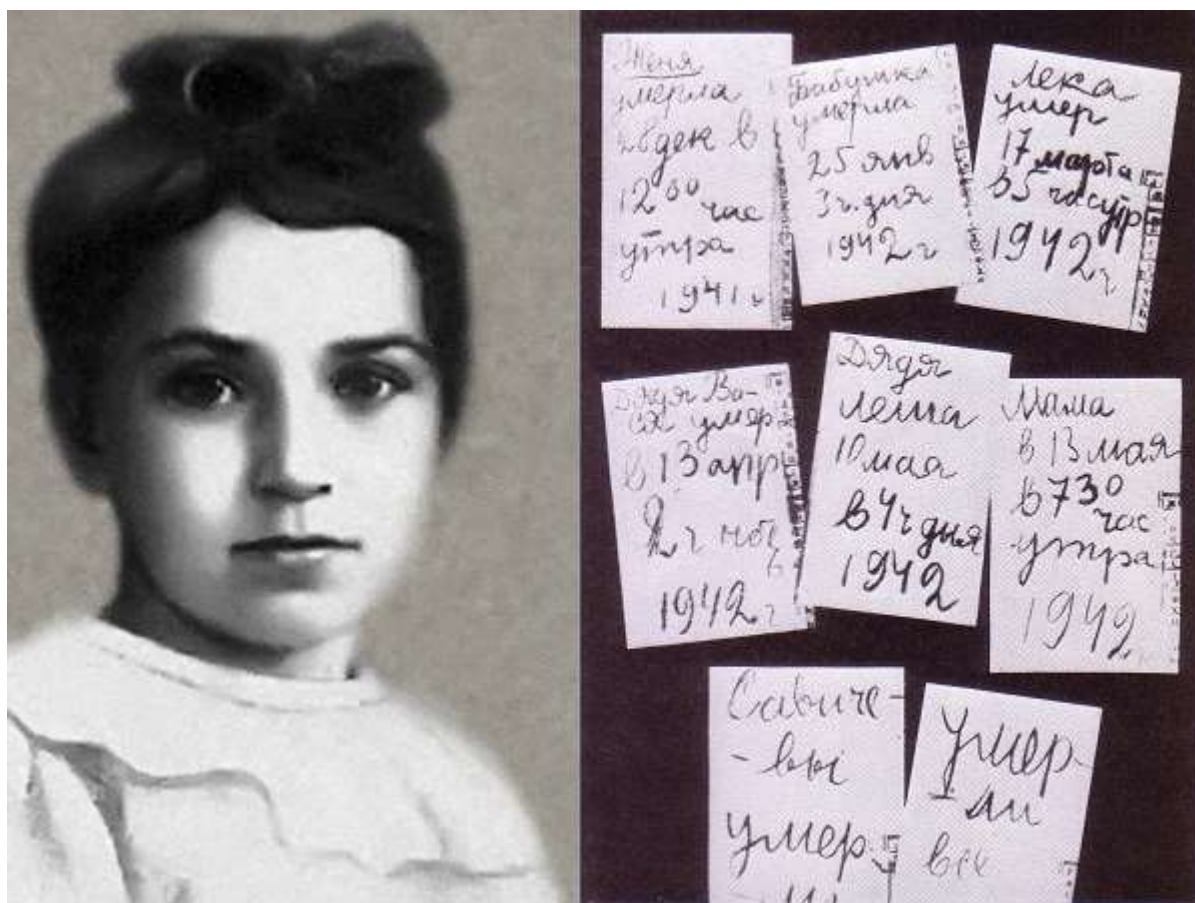 Женя
умерла
28 дек в
12 00 час
утра
1941 г
Бабушка
умерла
25 янв
3 ч. дня
1942 г
Лека
умер
17 марта
в 5 час утр
1942 г
Дядя Ва-
ся умер
в 13 апр
2 ч ноч
1942 г
Дядя
Леша
10 мая
в 4 ч дня
1942
Мама
в 13 мая
в 7 30
час
утра
1942
Савиче-
-вы
умер
Умер
ли
все